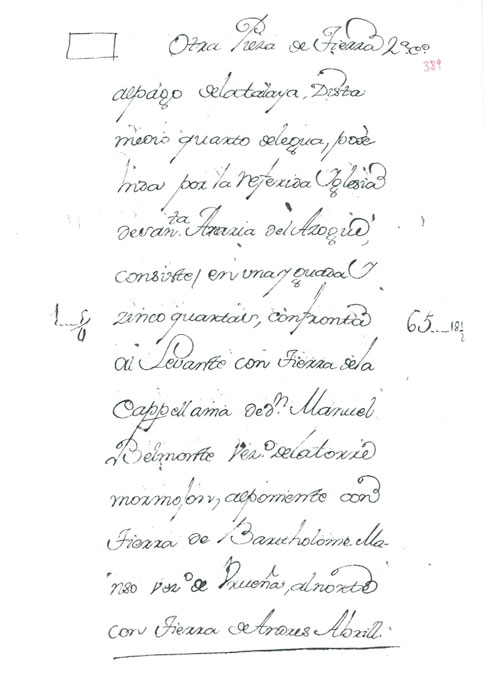 Otra Pieza de Tierra
389
al pago delatalaya, Dista
medio quarto delegua, posse
hida por la referida Yglesia
desan.ta Maria del Azogue,
consiste, en una Yguada Y
zinco quartas, confronta
65
al Levante con Tierra dela
Cappellania de d.n Manuel
Belmonte vez.o delatorre
mormojon, alponiente con
Tierra de Bartholome Ma-
nso vez.o de Urueña, alnorte
con Tierra de Andres Abrill.